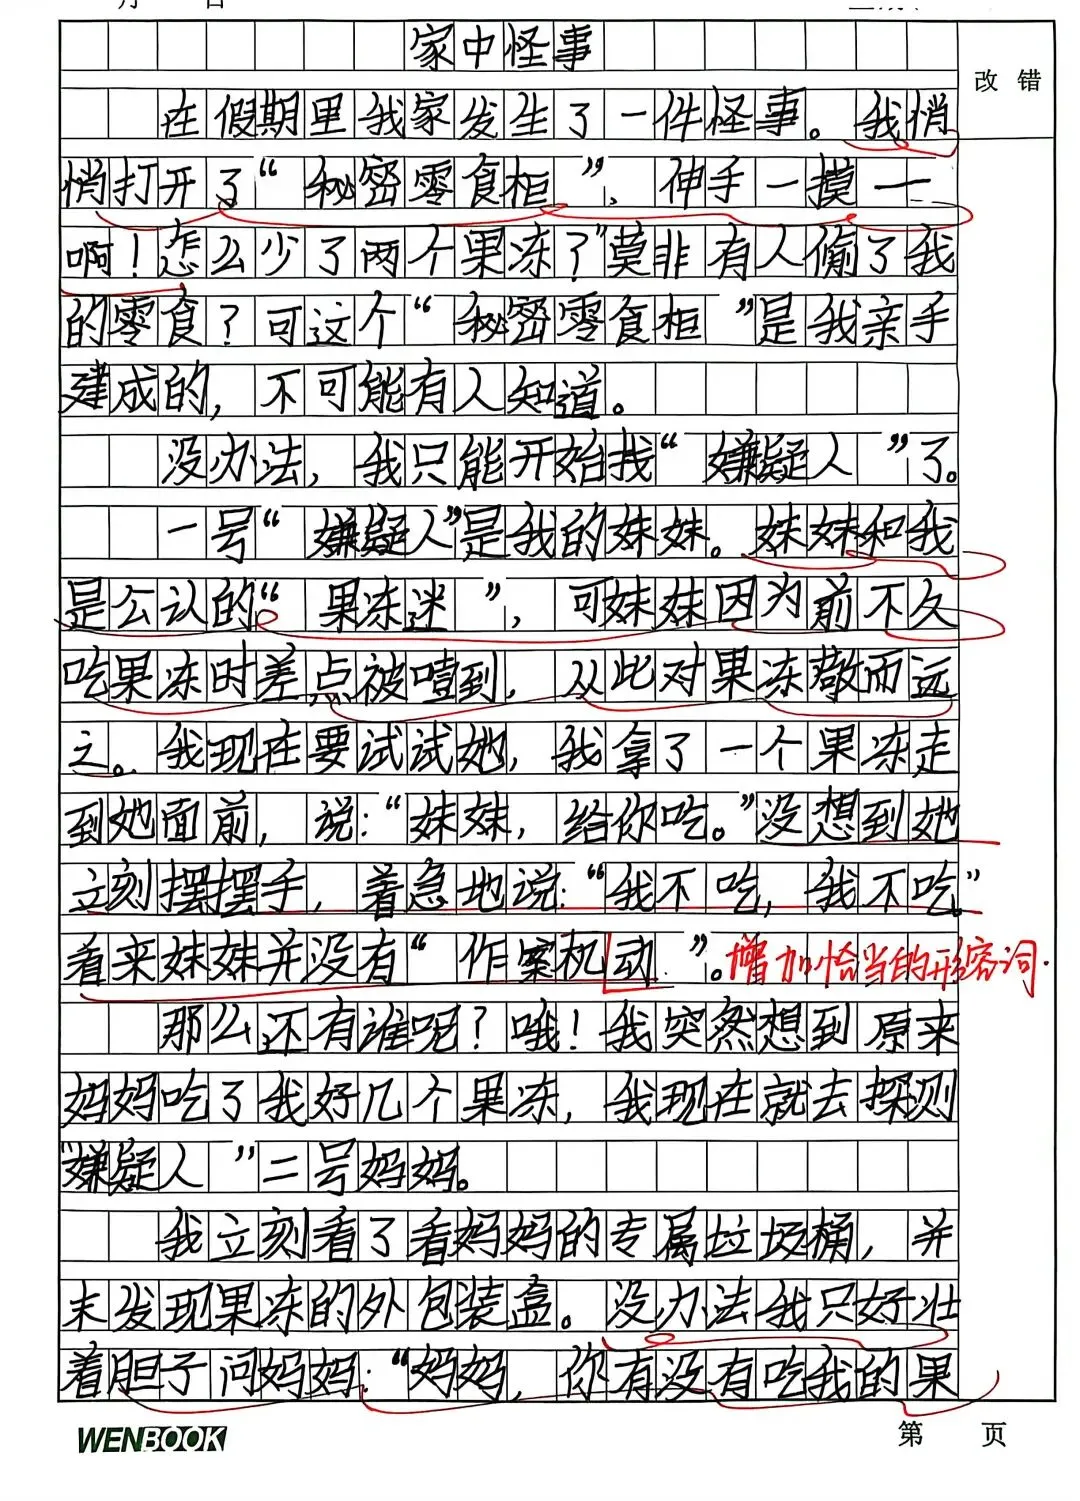 家中怪事
改错
在假期里我家发生了一件怪事。我悄
悄打开了“秘密零食柜”，伸手一摸——
啊！怎么少了两个果冻？”莫非有人偷了我
的零食？可这个“秘密零食柜”是我亲手
建成的，不可能有人知道。
没办法，我只能开始找“嫌疑人”了。
一号“嫌疑人”是我的妹妹。妹妹和我
是公认的“果冻迷”，可妹妹因为前不久
吃果冻时差点被噎到，从此对果冻敬而远
之。我现在要试试她，我拿了一个果冻走
到她面前，说：“妹妹，给你吃。”没想到她
立刻摆摆手，着急地说：“我不吃，我不吃。”
看来妹妹并没有“作案机动”。增加恰当的形容词.
那么还有谁呢？哦！我突然想到原来
妈妈吃了我好几个果冻，我现在就去探测
“嫌疑人”二号妈妈。
我立刻看了看妈妈的专属垃圾桶，并
未发现果冻的外包装盒。没办法我只好壮
着胆子问妈妈：“妈妈，你有没有吃我的果
WENBOOK
第 页